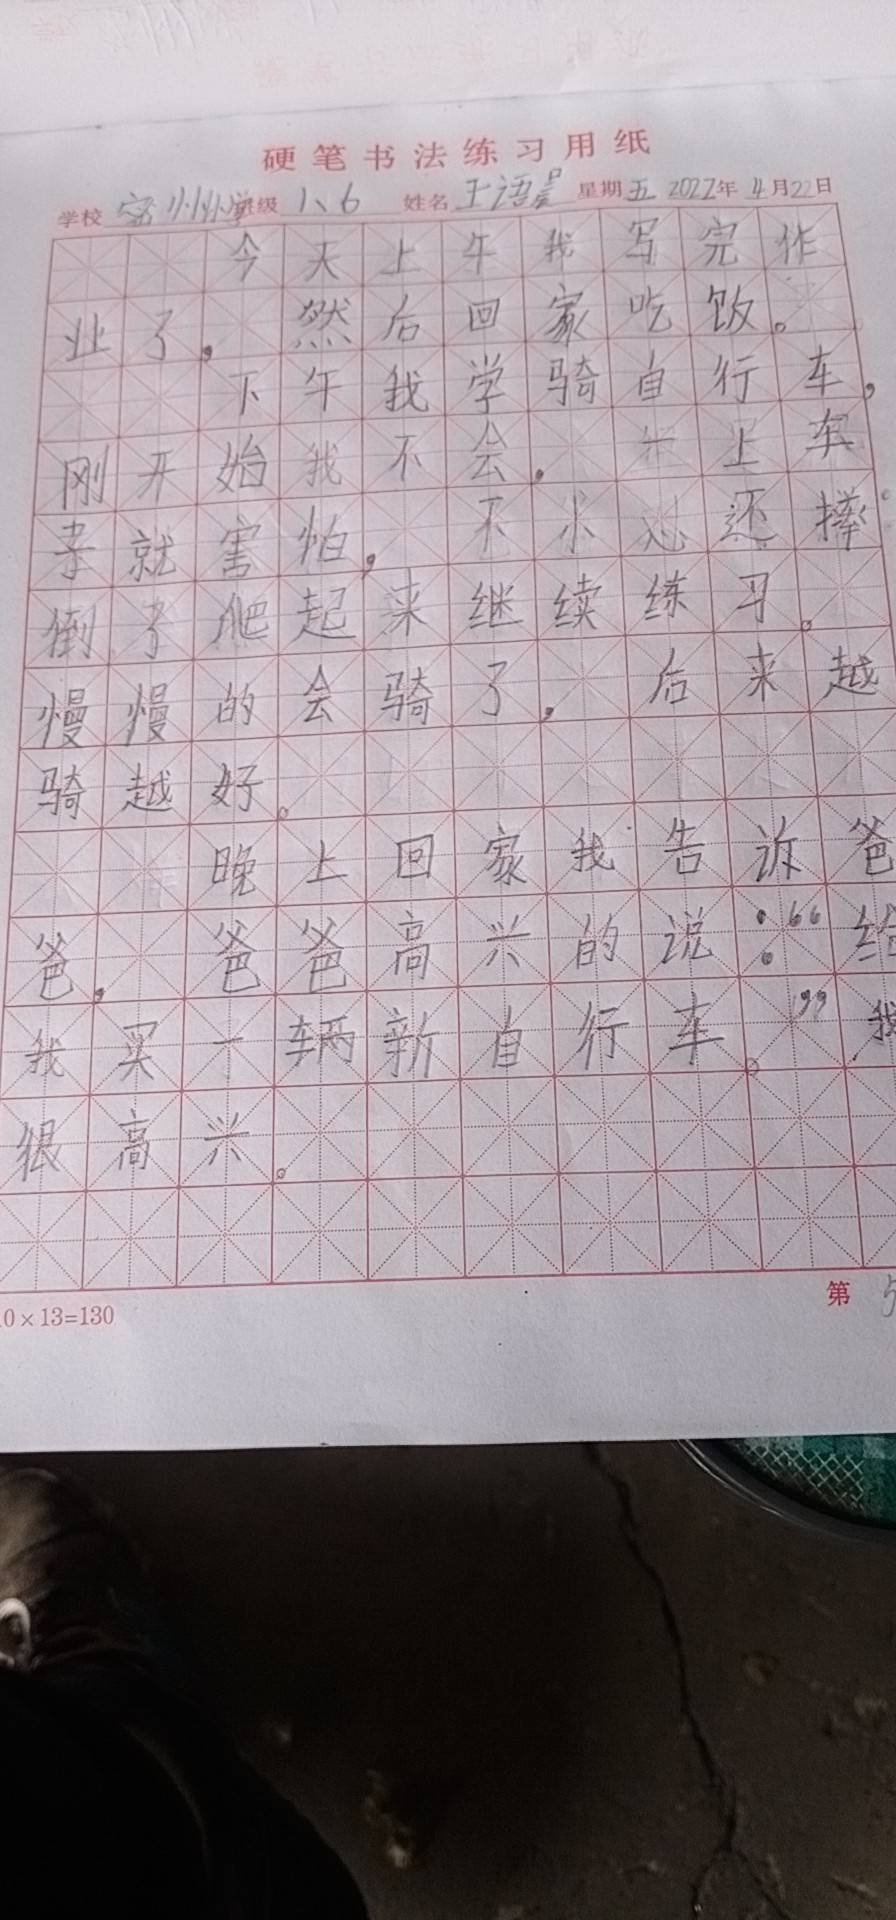 硬笔书法练习用纸
学校 密州小学 班级 1、6 姓名 王语晨 星期 五 2022年 4月22日
今天上午我写完作
业了，然后回家吃饭。
下午我学骑自行车，
刚开始我不会，一上车
子就害怕，不小心还摔
倒了爬起来继续练习。
慢慢的会骑了，后来越
骑越好。
晚上回家我告诉爸
爸，爸爸高兴的说：“给
我买一辆新自行车。”我
很高兴。
10×13=130
第 5